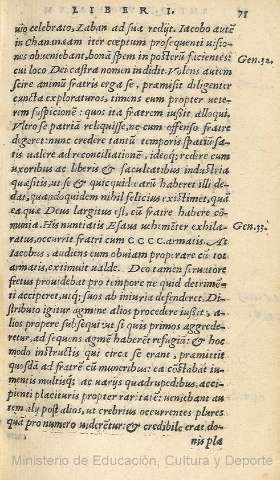 LIBER I. 75
uiio celebrato, Laban ad sua redijt. Iacobo autē
in Channæam iter cœptum prosequenti uisio-
nes obueniebant, bonā spem in posterū facientes:
cui loco Dei castra nomen indidit. Volens autem
scire animū fratris erga se, præmisit diligenter
cuncta exploraturos, timens eum propter uete-
rem suspicionē: quos ita fratrem iußit alloqui.
Vltro se patriā reliquisse, ne cum offenso fratre
degeret: nunc credere tantū temporis spatiū sa-
tis ualere ad reconciliationē, ideoq; redire cum
uxoribus ac liberis & facultatibus industria
quæsitis, ut se & quicquid carū haberet illi de-
dat, quandoquidem nihil felicius existimet, quā
ea quæ Deus largitus est, cū fratre habere cō-
munia. His nuntiatis Esaus uehemēter exhila-
ratus, occurrit fratri cum CCCC. armatis. At
Iacobus, audiens eum obuiam properare cū tot
armatis, extimuit ualde. Deo tamen seruatore
fretus prouidebat pro tempore ne quid detrimē-
ti acciperet, utq; suos ab iniuria defenderet. Di-
stributo igitur agmine alios procedere iußit, a-
lios propere subsequi: ut si quis primos aggrede-
retur, ad sequens agmē haberēt refugiū: & hoc
modo instructis qui circa se erant, præmittit
quosdā ad fratrē cū muneribus: ea cōstabāt iu-
mentis multisq; ac uarijs quadrupedibus, acci-
pienti placituris propter raritatē: ueniebant au-
tem alij post alios, ut crebrius occurrentes plures
quā pro numero uiderētur: & credibile erat do-
nis pla
Gen. 32.
Gen. 33.
Ministerio de Educación, Cultura y Deporte